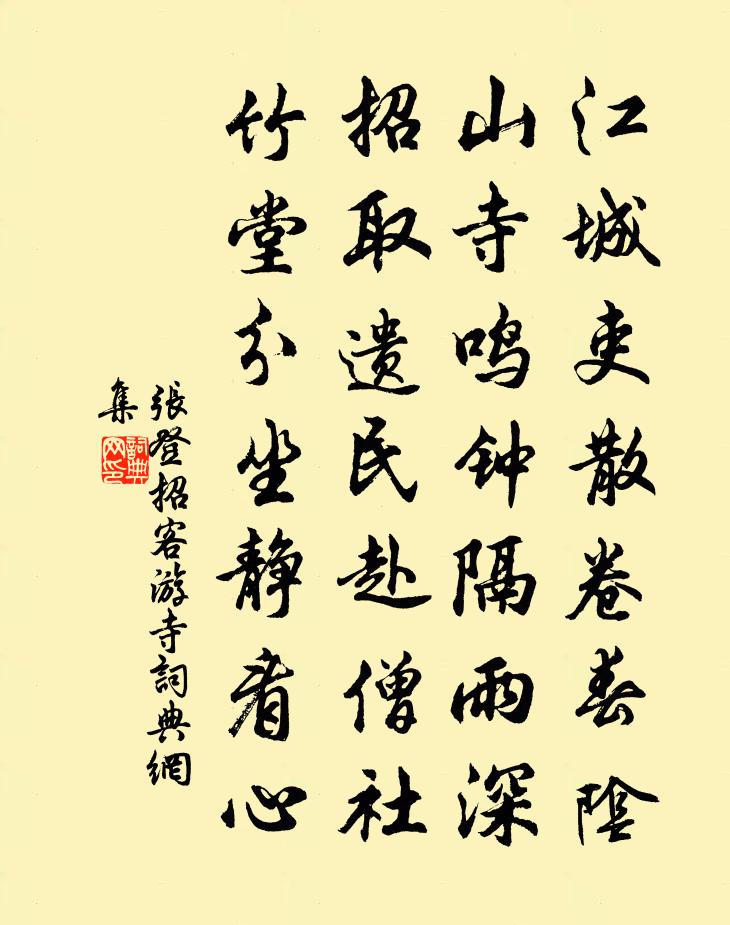 江城吏散卷春陰
山寺鸣钟隔雨深
招取遗民赴僧社
竹堂分坐静看心
張登招客游寺詞典網
集
詞典
网印